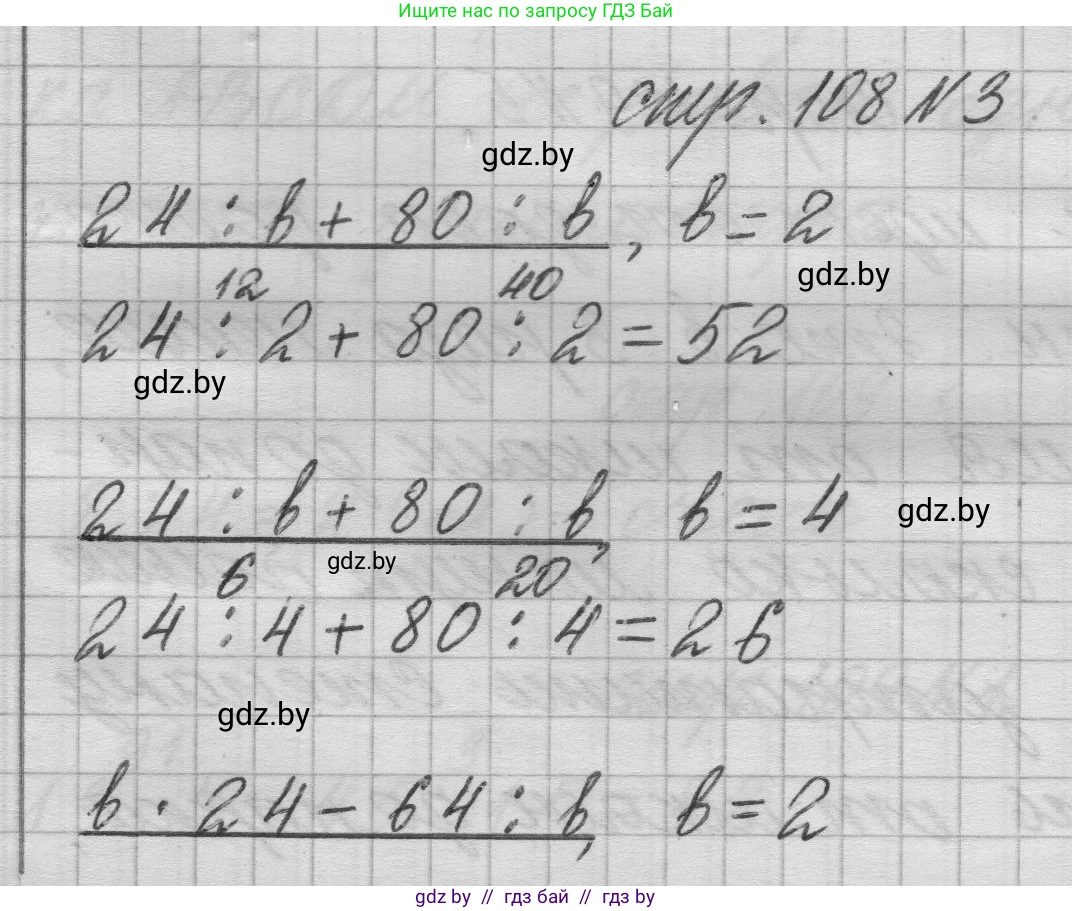 Ищите нас по запросу ГДЗ Бай
стр. 108 № 3
gdz.by
24 : в + 80 : в, в = 2
gdz.by
12 40
24 : 2 + 80 : 2 = 52
gdz.by
24 : в + 80 : в, в = 4
gdz.by
gdz.by
6 20
24 : 4 + 80 : 4 = 26
gdz.by
в · 24 - 64 : в, в = 2
gdz.by // гдз бай // гдз by